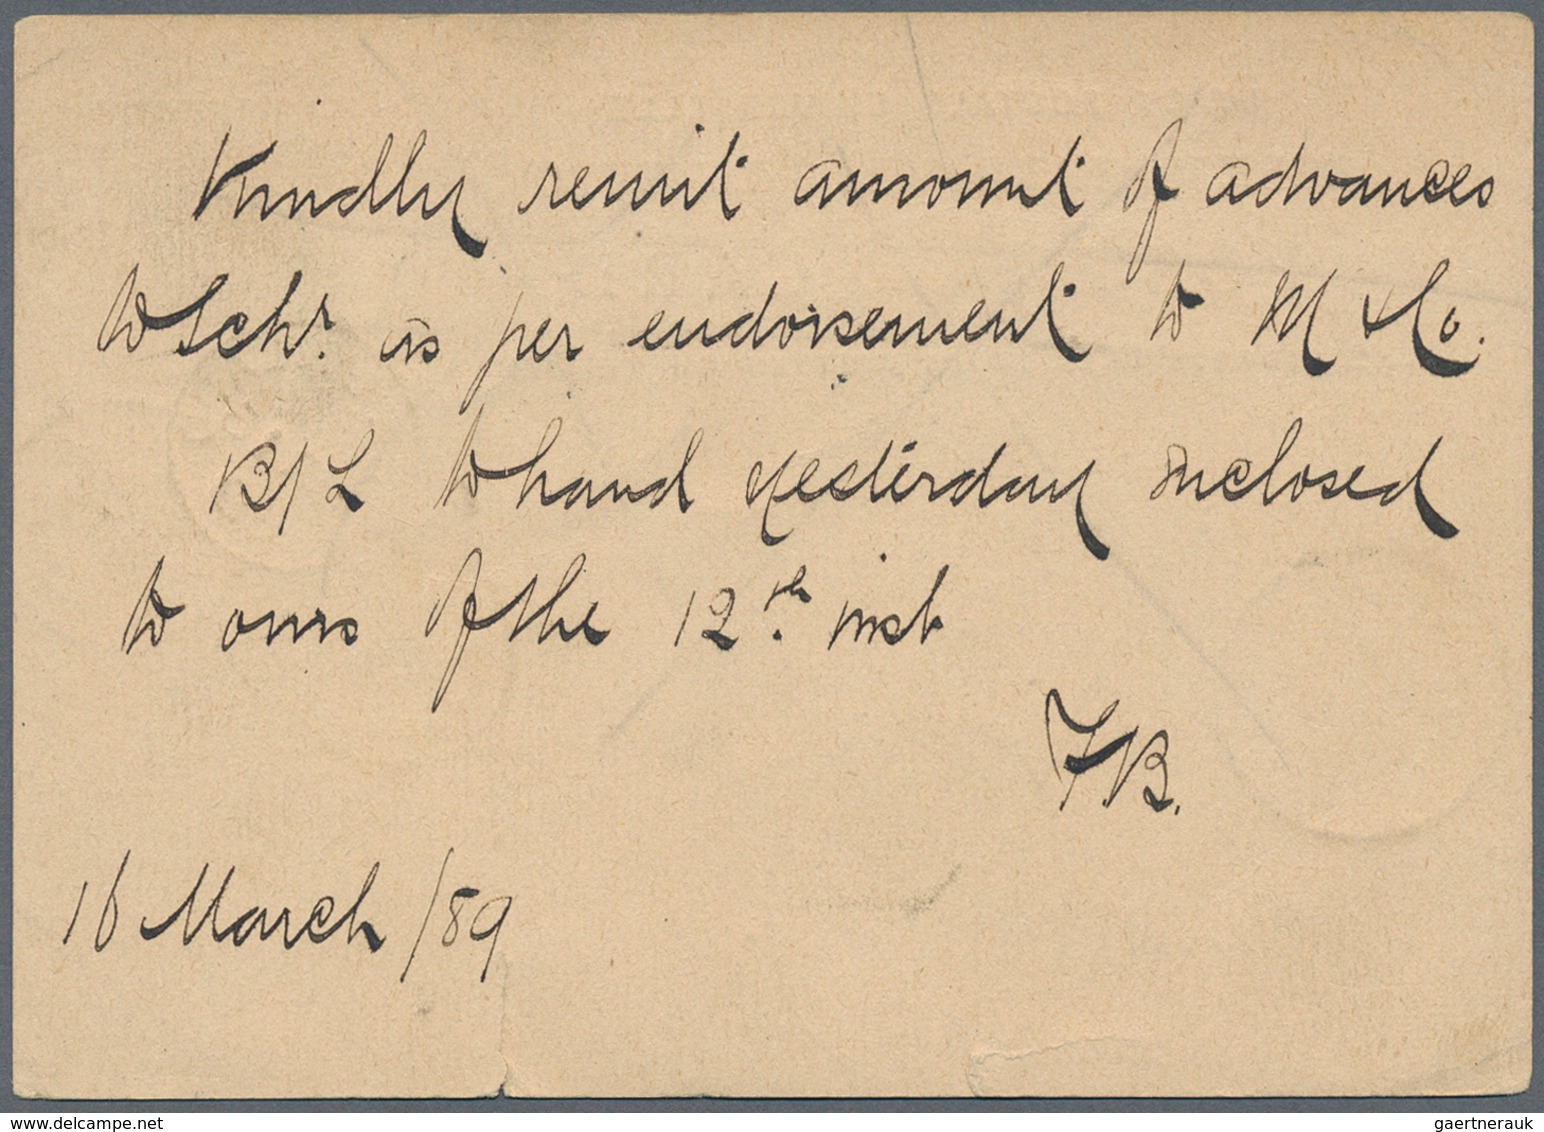 Kindly remit amount of advances
to Schr. as per endorsement to M & Co.
B/L to hand yesterday enclosed
to ours of the 12th inst
F.B.
16 March /89
www.delcampe.net
gaertnerauk